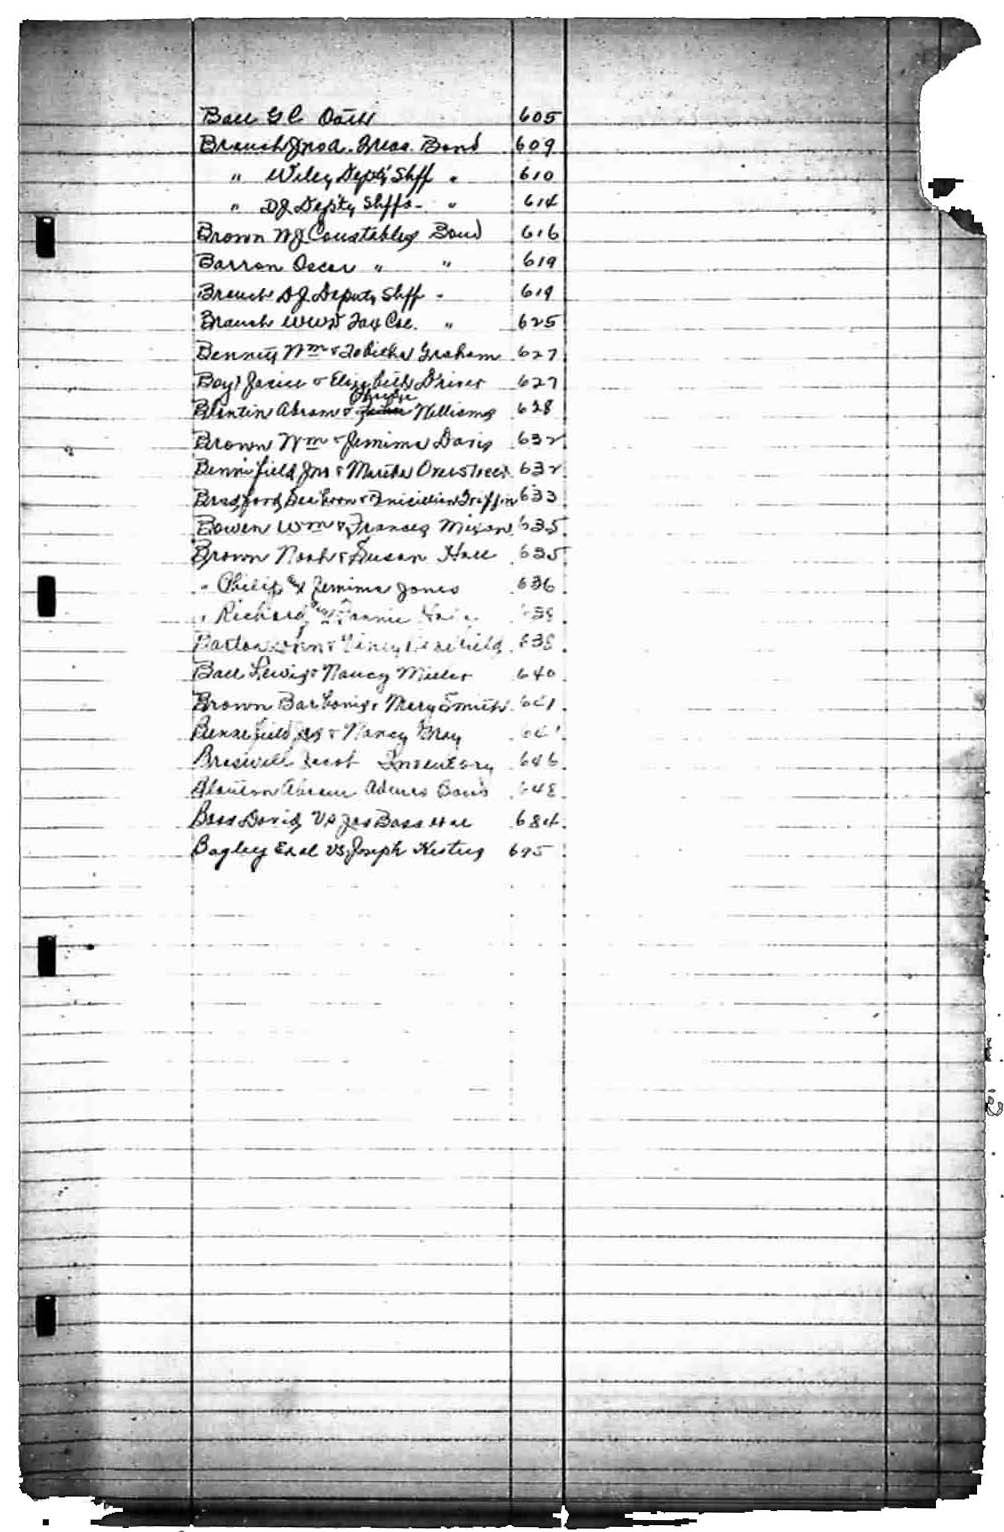 Ball G C Oath 605
Branch Jno A. Treas. Bond 609
" Wiley Depty Shff " 610
" DJ Depty Shffs - " 614
Brown WJ Constables Bond 616
Barron Oscar " " 619
Branch DJ Deputy Shff - 619
Branch WWD Tax Col. " 625
Bennett Wm & Tabitha Graham 627
Boyt & Elizabeth Driver 627
Blantin Abram & Williams 628
Brown Wm & Jemima Davis 632
Bennifield Jno & Martha Overstreet 632
Bradford & Griffin 633
Bowen Wm & Frances Mixon 635
Brown Noah & Susan Hall 635
" Philip & Jemima Jones 636
" Richard & Fannie
Barton John & 638
Ball Lewis & Nancy Miller 640
Brown & Mary Smith 641
Bennefield & Nancy Bray
Braswell Jacob Inventory 646
Abram Admrs Bond 648
Bass David Vs Jas Bass et al 684
Bagley et al vs Joseph 695